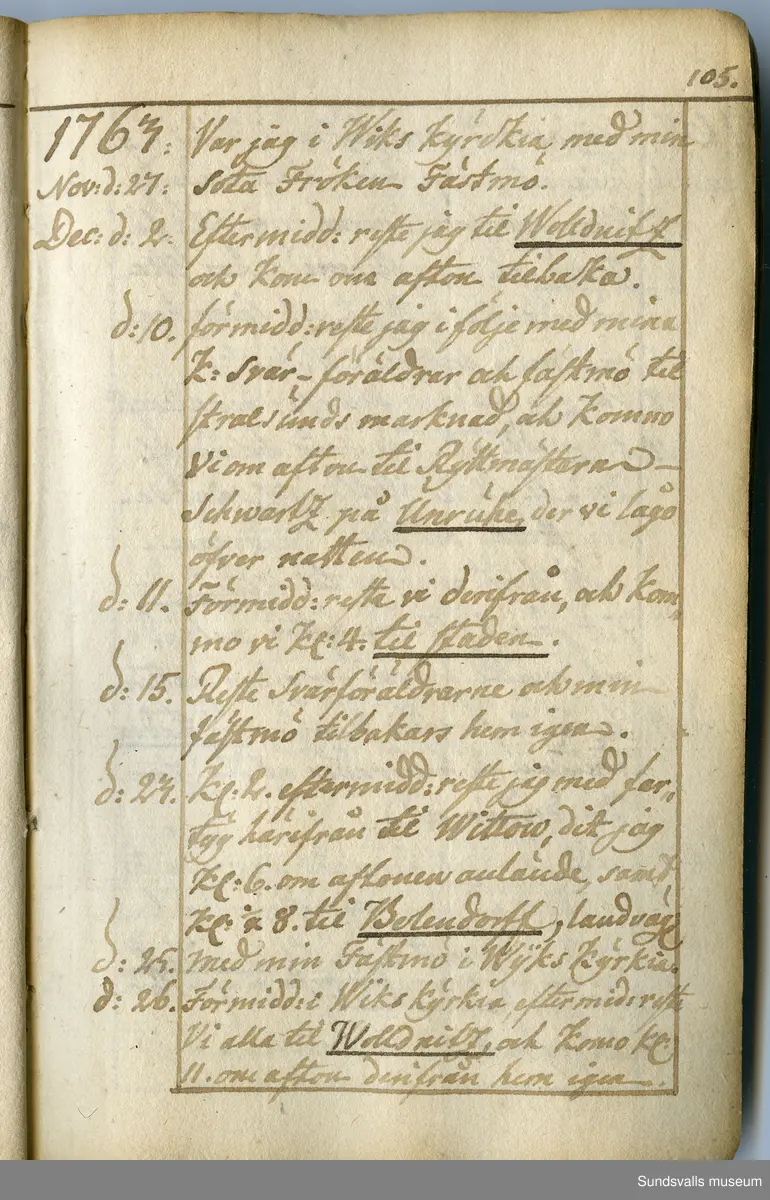 105.
1763: Var jag i Wiks kyrckia med min
Nov: d: 27: söta Fröken Fästmö.
Dec: d: 2. Eftermidd: reste jag til Wolldnitz
och kom om afton tilbaka.
d: 10. förmidd: reste jag i följe med mina
K: Svär-föräldrar och fästmö til
stralsunds marknad, och kommo
vi om afton til Ryttmästaren
Schwartz på Unruhe, der vi lågo
öfver natten.
d: 11. Förmidd: reste vi derifrån, och kom,,
mo vi kl: 4. til staden.
d: 15. Reste Svärföräldrarne och min
fästmö tilbakars hem igen.
d: 23. kl: 2. eftermidd: reste jag med far,,
tyg härifrån til Wittow, dit jag
kl: 6. om aftonen anlände, samt
kl: 8. til Bolendorff, landväg
d: 25. med min Fästmö i Wyks Kyrkia.
d: 26. Förmidd: i Wiks kyrkia, eftermid: reste
Vi alla til Wolldnitz, och komo kl:
11. om afton derifrån hem igen.
Sundsvalls museum